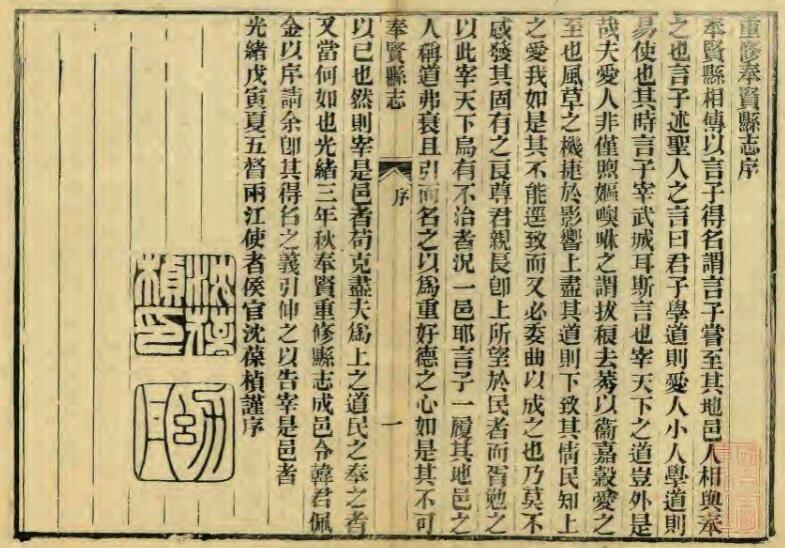 重修奉賢縣志序
奉賢縣相傳以言子得名謂言子嘗至其地邑人相與奉
之也言子述聖人之言曰君子學道則愛人小人學道則
易使也其時言子宰武城耳斯言也宰天下之道豈外是
哉夫愛人非僅煦嫗噢咻之謂拔稂去莠以衞嘉穀愛之
至也風草之機捷於影響上盡其道則下致其情民知上
之愛我如是其不能逕致而又必委曲以成之也乃莫不
感發其固有之良尊君親長卽上所望於民者而胥勉之
以此宰天下烏有不治者況一邑耶言子一履其地邑之
人稱道弗衰且引而名之以爲重好德之心如是其不可
奉賢縣志
序
一
以已也然則宰是邑者苟克盡夫爲上之道民之奉之者
又當何如也光緒三年秋奉賢重修縣志成邑令韓君佩
金以序請余卽其得名之義引伸之以告宰是邑者
光緒戊寅夏五督兩江使者侯官沈葆楨謹序
沈葆
楨印